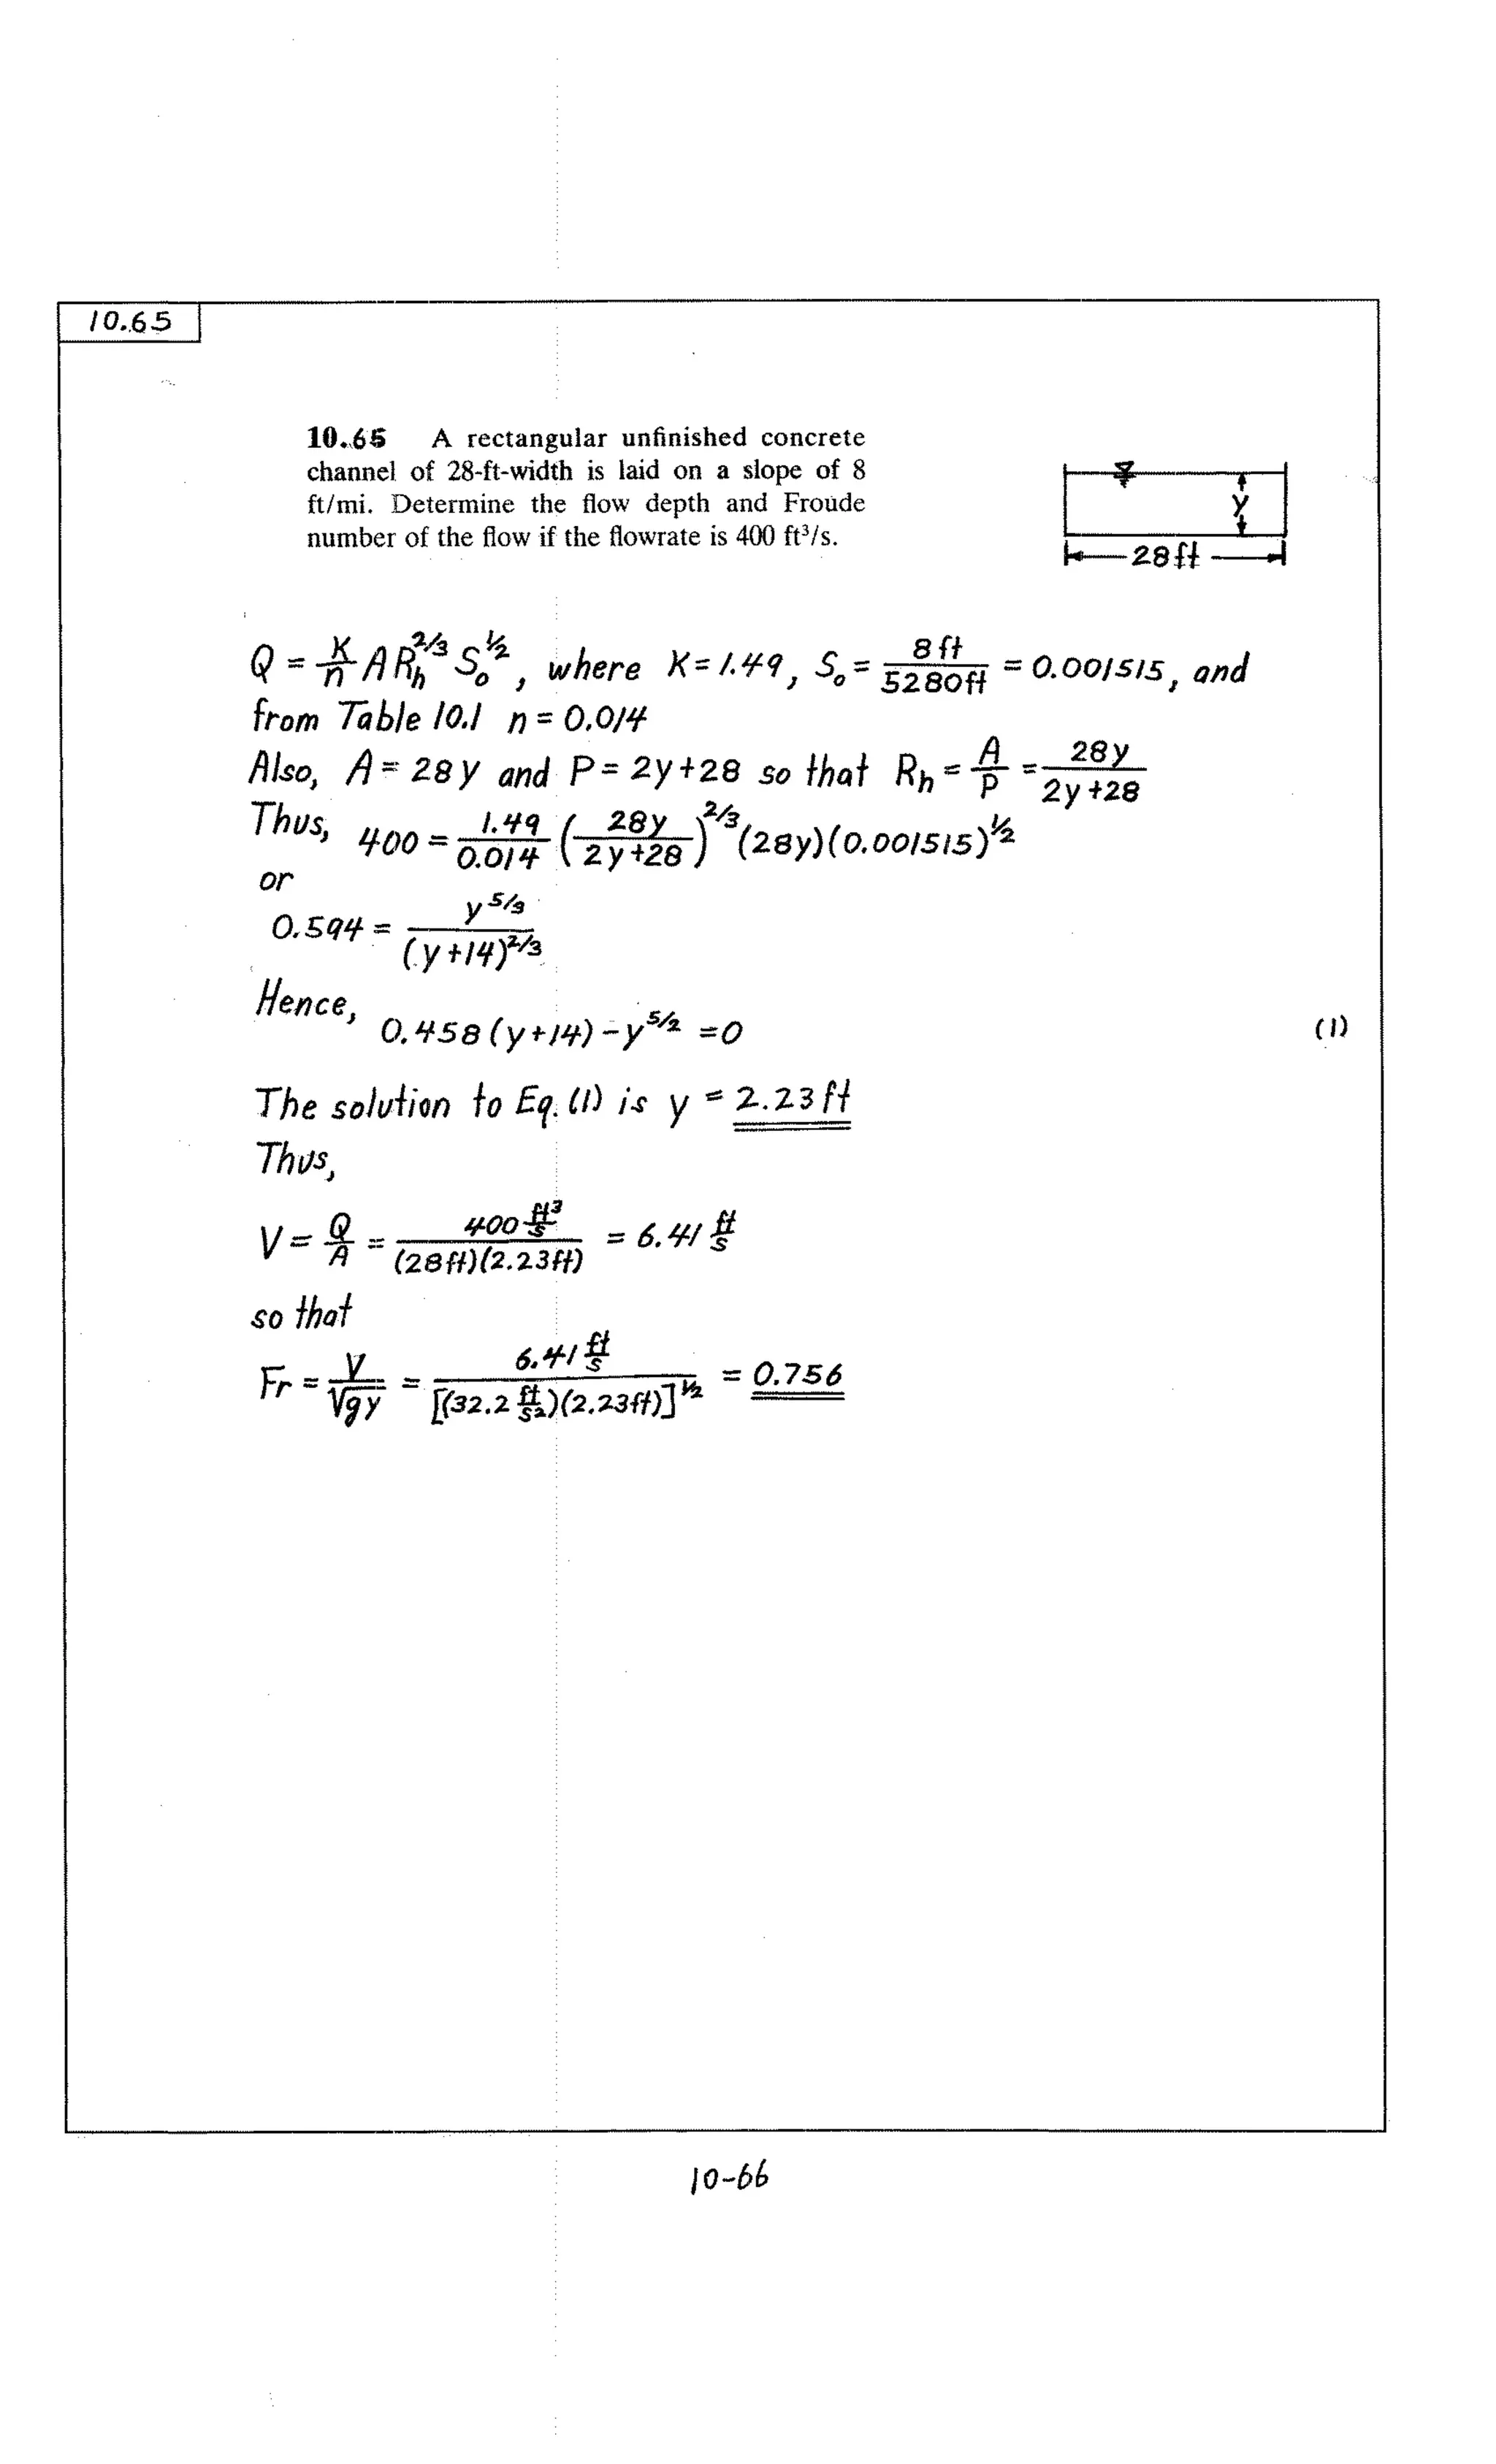 10.65
10.65 A rectangular unfinished concrete
channel of 28-ft-width is laid on a slope of 8
ft/mi. Determine the flow depth and Froude
number of the flow if the flowrate is 400 ft³/s.
y
28 ft
Q = K/n A R_h^2/3 S_o^1/2, where K = 1.49, S_o = 8 ft/5280 ft = 0.001515, and
from Table 10.1 n = 0.014
Also, A = 28 y and P = 2y+28 so that R_h = A/P = 28y/2y+28
Thus, 400 = 1.49/0.014 (28y/2y+28)^2/3 (28y)(0.001515)^1/2
or
0.594 = y^5/3/(y+14)^2/3
Hence, 0.458 (y+14) - y^5/2 = 0 (1)
The solution to Eq. (1) is y = 2.23 ft
Thus,
V = Q/A = 400 ft³/s/(28ft)(2.23ft) = 6.41 ft/s
so that
Fr = V/√gy = 6.41 ft/s/[(32.2 ft/s²)(2.23ft)]^1/2 = 0.756
10-66